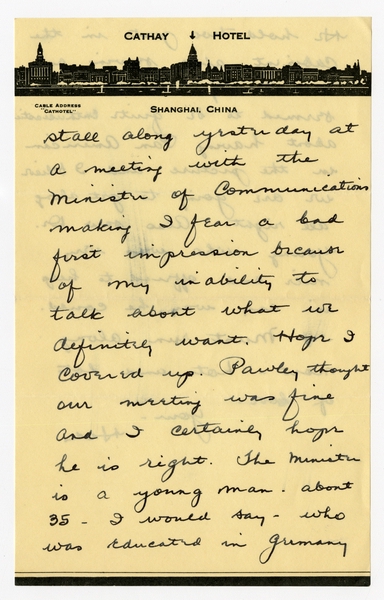 CATHAY HOTEL
CABLE ADDRESS
"CATHOTEL"
SHANGHAI, CHINA
stall along yesterday at
a meeting with the
Minister of Communications
making I fear a bad
first impression because
of my inability to
talk about what we
definitely want. Hope I
covered up. Pawley thought
our meeting was fine
and I certainly hope
he is right. The Minister
is a young man. about
35 - I would say - who
was educated in Germany